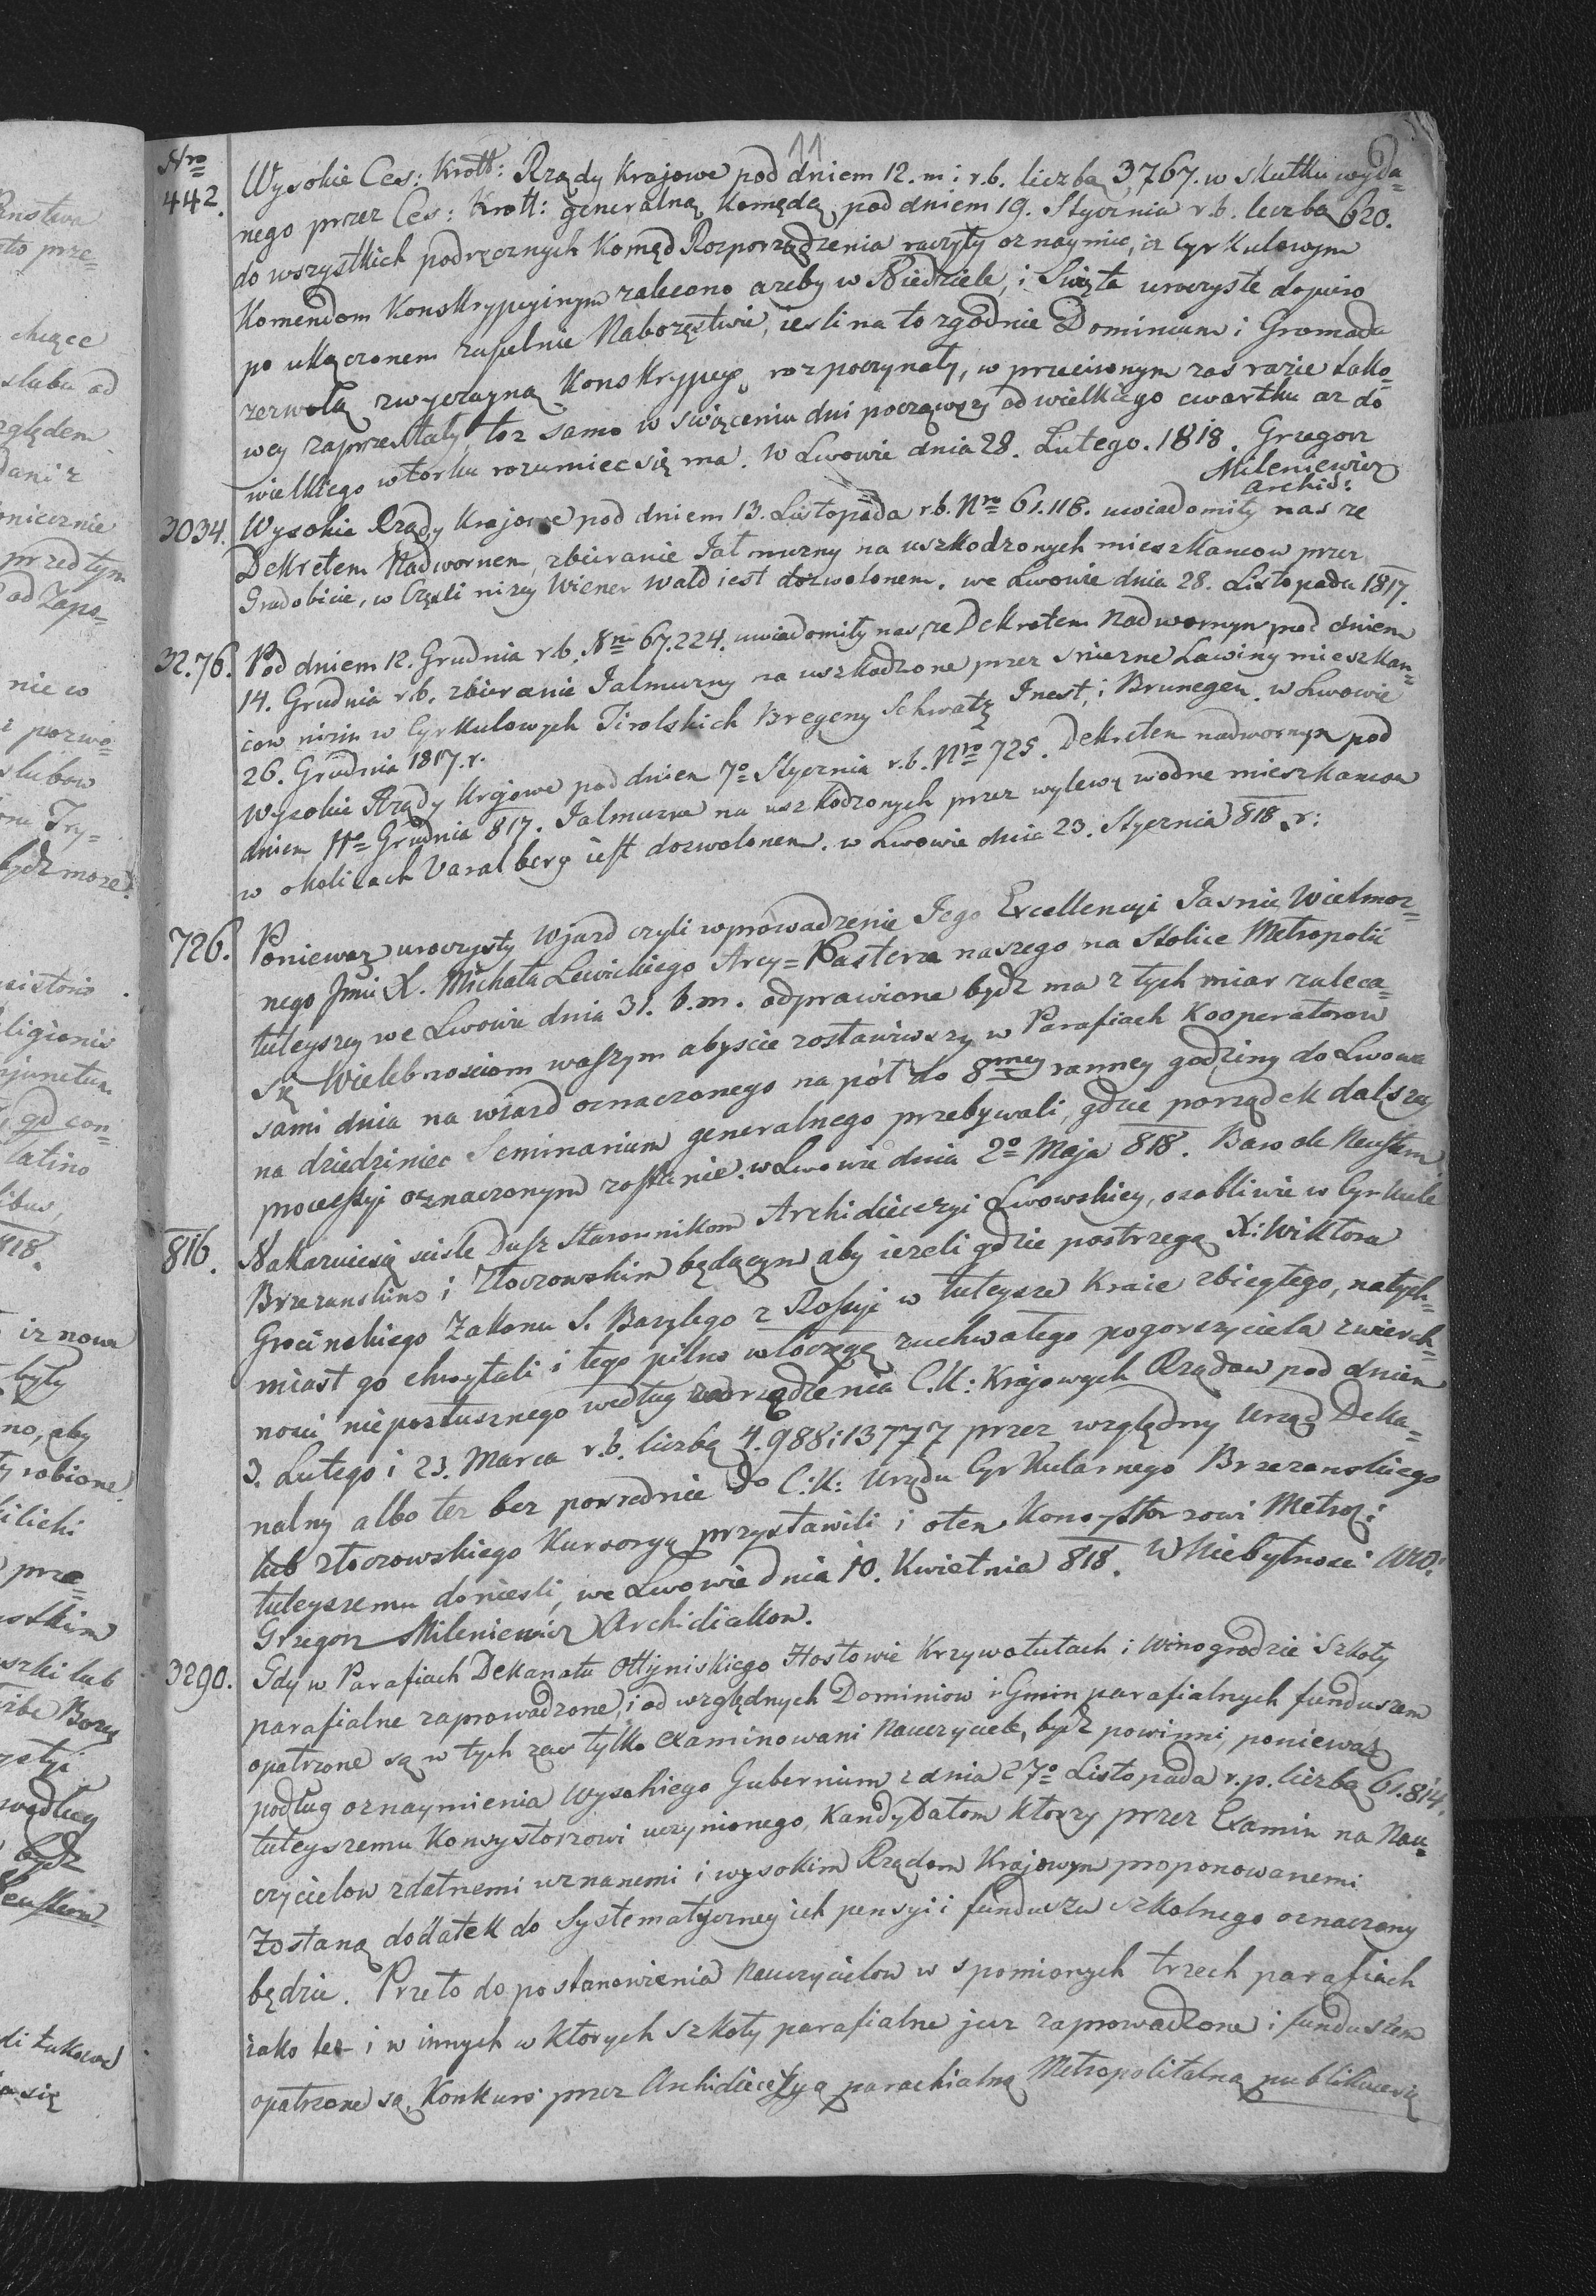 11
Nro
442. Wysokie Ces: Krott: Rządy Krajowe pod dniem 12. m: r.b. liczbą 3,767. w skutku wyda=
nego przez Ces: Krott: generalną Komędę pod dniem 19. Stycznia r.b. liczbą 620.
do wszystkich podręcznych Komęd Rozporządzenia raczyły oznaymic, iz Cyrkulowym
Komendom Konskrypcyinym zalecono azeby w Niedziele, i Swięta uroczyste dopiero
po ukączonem zupelnie Nabozęstwie, iesli na to zgodnie Dominium i Gromada
zezwolą zwyczayną Konskrypcyę rozpoczynały, w przeciwnym zas razie tako=
wey zaprzestały, toz samo w swięceniu dni począwszy od wielkiego czwartku az do
wielkiego wtorku rozumiec się ma. W Lwowie dnia 28. Lutego. 1818. Grzegorz
Mileniewicz
Archid:
3034. Wysokie Rządy Krajowe pod dniem 13. Listopada r.b. Nro 61.118. uwiadomiły nas ze
Dekretem Nadwornem, zbieranie Jałmuzny na uszkodzonych mieszkancow przez
Gradobicie, w Części nizey Wiener Wald iest dozwolonem. we Lwowie dnia 28. Listopada 1817.
32.76. Pod dniem 12. Grudnia r.b. Nro 67.224. uwiadomiły nas, ze Dekretem Nadwornym pod dniem
14. Grudnia r.b. zbieranie Jalmuzny na uszkodzone przez sniezne Lawiny mieszkan=
cow nizin w Cyrkulowych Tirolskich Bregeny Schwatz Inest, i Brunegen. w Lwowie
26. Grudnia 1817. r.
Wysokie Rządy Krajowe pod dniem 7o Stycznia r.b. Nro 725. Dekretem nadwornym pod
dniem 11o Grudnia 817. Jalmuzna na uszkodzonych przez wylewy wodne mieszkancow
w okolicach Varalberg iest dozwolonem. w Lwowie dnia 23. Stycznia 818. r:
726. Poniewaz uroczysty Wjazd czyli wprowadzenie Jego Excellencyi Jasnie Wielmoz=
nego Jmci X. Michała Lewickiego Arcy=Pasterza naszego na Stolice Metropolii
tuteyszey we Lwowie dnia 31. b.m. odprawione bydz ma z tych miar zaleca=
się Wielebnosciom waszym abyscie zostawiwszy w Parafiach Kooperatorow
sami dnia na wiazd oznaczonego na pół do 8mey ranney godziny do Lwowa
na dziedziniec Seminarium generalnego przebywali, gdzie porządek dalszey
processyi oznaczonym zostanie. w Lwowie dnia 2o Maja 818. Baro de Neustern
816. Nakazuiesię scisle Dusz Starownikom Archidiecezyi Lwowskiey, osobliwie w Cyrkule
Brzezanskim i Złoczowskim będącym aby iezeli gdzie postrzegą X: Wiktora
Grocinskiego Zakonu S. Bazylego z Rossyi w tuteysze Kraie zbiegłego, natych=
miast go chwytali i tego pilno włóczęgę zuchwałego pogorszyciela zwierch=
nosci nieposłusznego według rozrządzenia C.K: Krajowych Rządow pod dniem
3. Lutego i 23. Marca r.b. liczbą 4.988 i 13777 przez względny Urząd Deka=
nalny albo tez bez posrednie do C:K: Urzędu Cyrkularnego Brzezanskiego
lub złoczowskiego Kursoryą przystawili i otem Konsystorzowi Metrop:
tuteyszemu doniesli, we Lwowie dnia 10. Kwietnia 818. W Niebytnosci
Grzegorz Mileniewicz Archidiakon.
3290. Gdy w Parafiach Dekanatu Ottyniskiego Hostowie Krzywotułach i Winogrodzie Szkoły
parafialne zaprowadzone, i od względnych Dominiow i Gmin parafialnych funduszem
opatrzone są w tych zas tylko examinowani Nauczyciele bydz powinni, poniewaz
podług oznaymienia Wysokiego Gubernium z dnia 27o Listopada r.p. liczbą 61.814.
tuteyszemu Konsystorzowi uczynionego, Kandydatom ktorzy przez Examin na Nau=
czycielow zdatnemi uznanemi i wysokim Rządom Krajowym proponowanemi
Zostaną dodatek do Systematyczney ich pensyi i funduszu szkolnego oznaczony
będzie. Przeto do postanowienia Nauczycielow w spomionych trzech parafiach
iako tez i w innych w ktorych szkoły parafialne juz zaprowadzone i funduszem
opatrzone są, Konkurs przez Archidiecezyą parachialną Metropolitalną publikuiesię